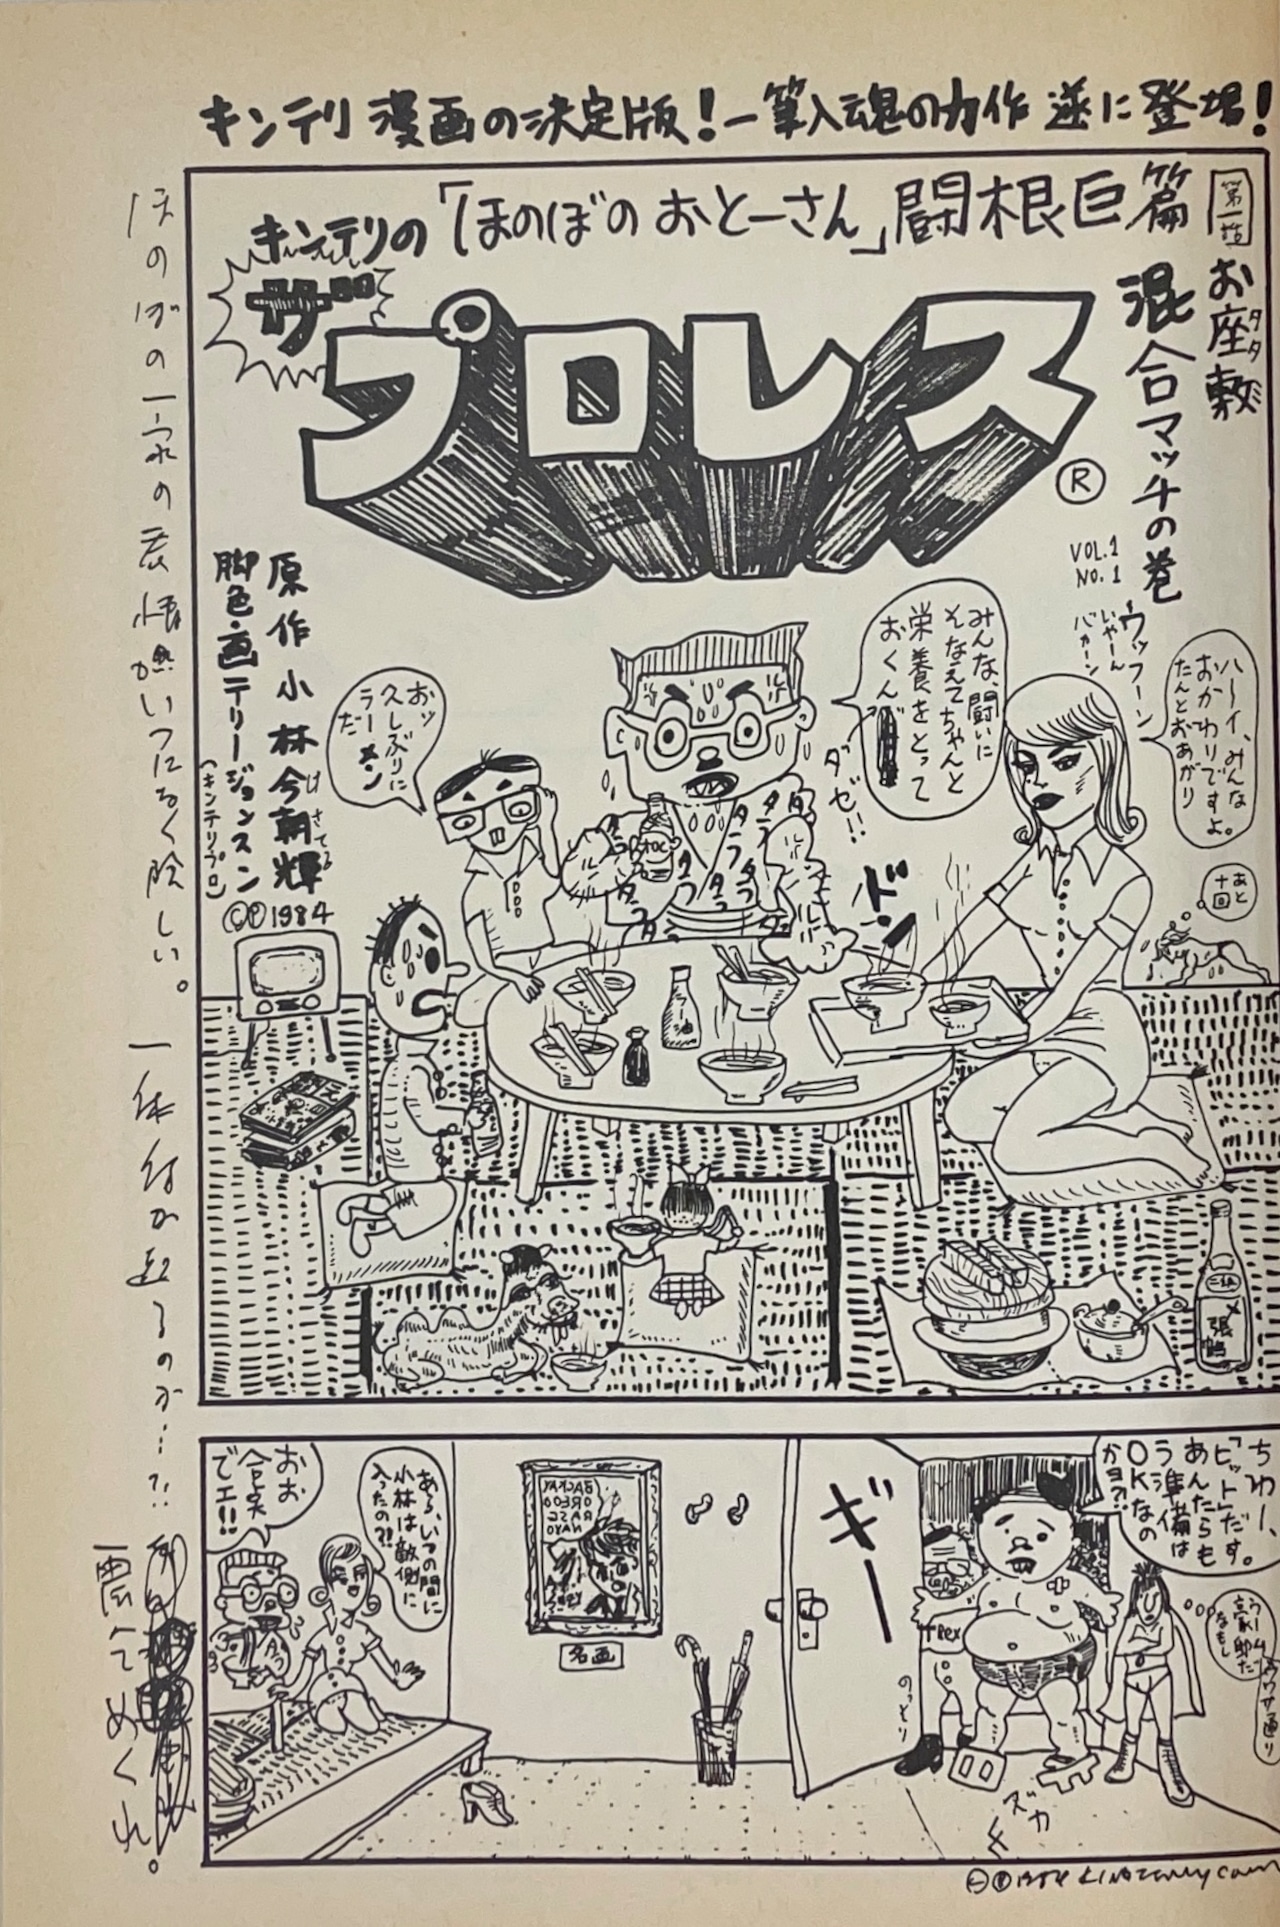 キンテリ漫画の決定版!一筆入魂の力作 遂に登場!
キンテリの「ほのぼのおとーさん」闘根巨篇
ザ
プロレス
®
第一話
お座敷
タタミ
混合マッチの巻
VOL.1
NO.1
ウッフーン
いやーん
バカーン
ハーイ、みんな
おかわりですよ。
たんとおあがり
あと
十回
みんな、闘いに
そなえてちゃんと
栄養をとって
おくん
ダゼ!!
おッ
久しぶりに
ラーメン
だ
原作 小林今朝輝
けさてる
脚色・画 テリージョンスン
(キンテリプロ)
©℗1984
ドン
タラ タラ タラ
油
二級
〆張鶴
ちわー、
「ヒット」だす。
あんたらも
う準備は
OKなの
かヨ??
うーム
豪邸だ
なもし
ウワサ通り
T・Rex
のっそり
ズカ
ギー
名画
あら、いつの間に
小林は敵側に
入ったの?!
おお
合哭
でエ!!
ほのぼの一家の表情
険しい。
一体何が起るのか…?!
震えてめくれ。